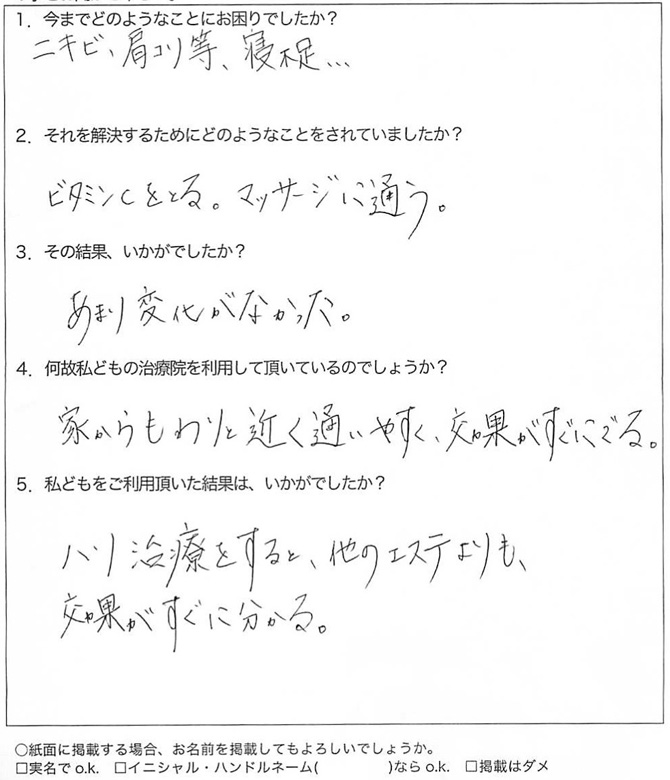 1．今までどのようなことにお困りでしたか？
ニキビ、肩コリ等、寝不足…
2．それを解決するためにどのようなことをされていましたか？
ビタミンCをとる。マッサージに通う。
3．その結果、いかがでしたか？
あまり変化がなかった。
4．何故私どもの治療院を利用して頂いているのでしょうか？
家からもわりと近く通いやすく、効果がすぐにでる。
5．私どもをご利用頂いた結果は、いかがでしたか？
ハリ治療をすると、他のエステよりも、
効果がすぐに分かる。
○紙面に掲載する場合、お名前を掲載してもよろしいでしょうか。
□実名でo.k. □イニシャル・ハンドルネーム(　　　　　)ならo.k. □掲載はダメ